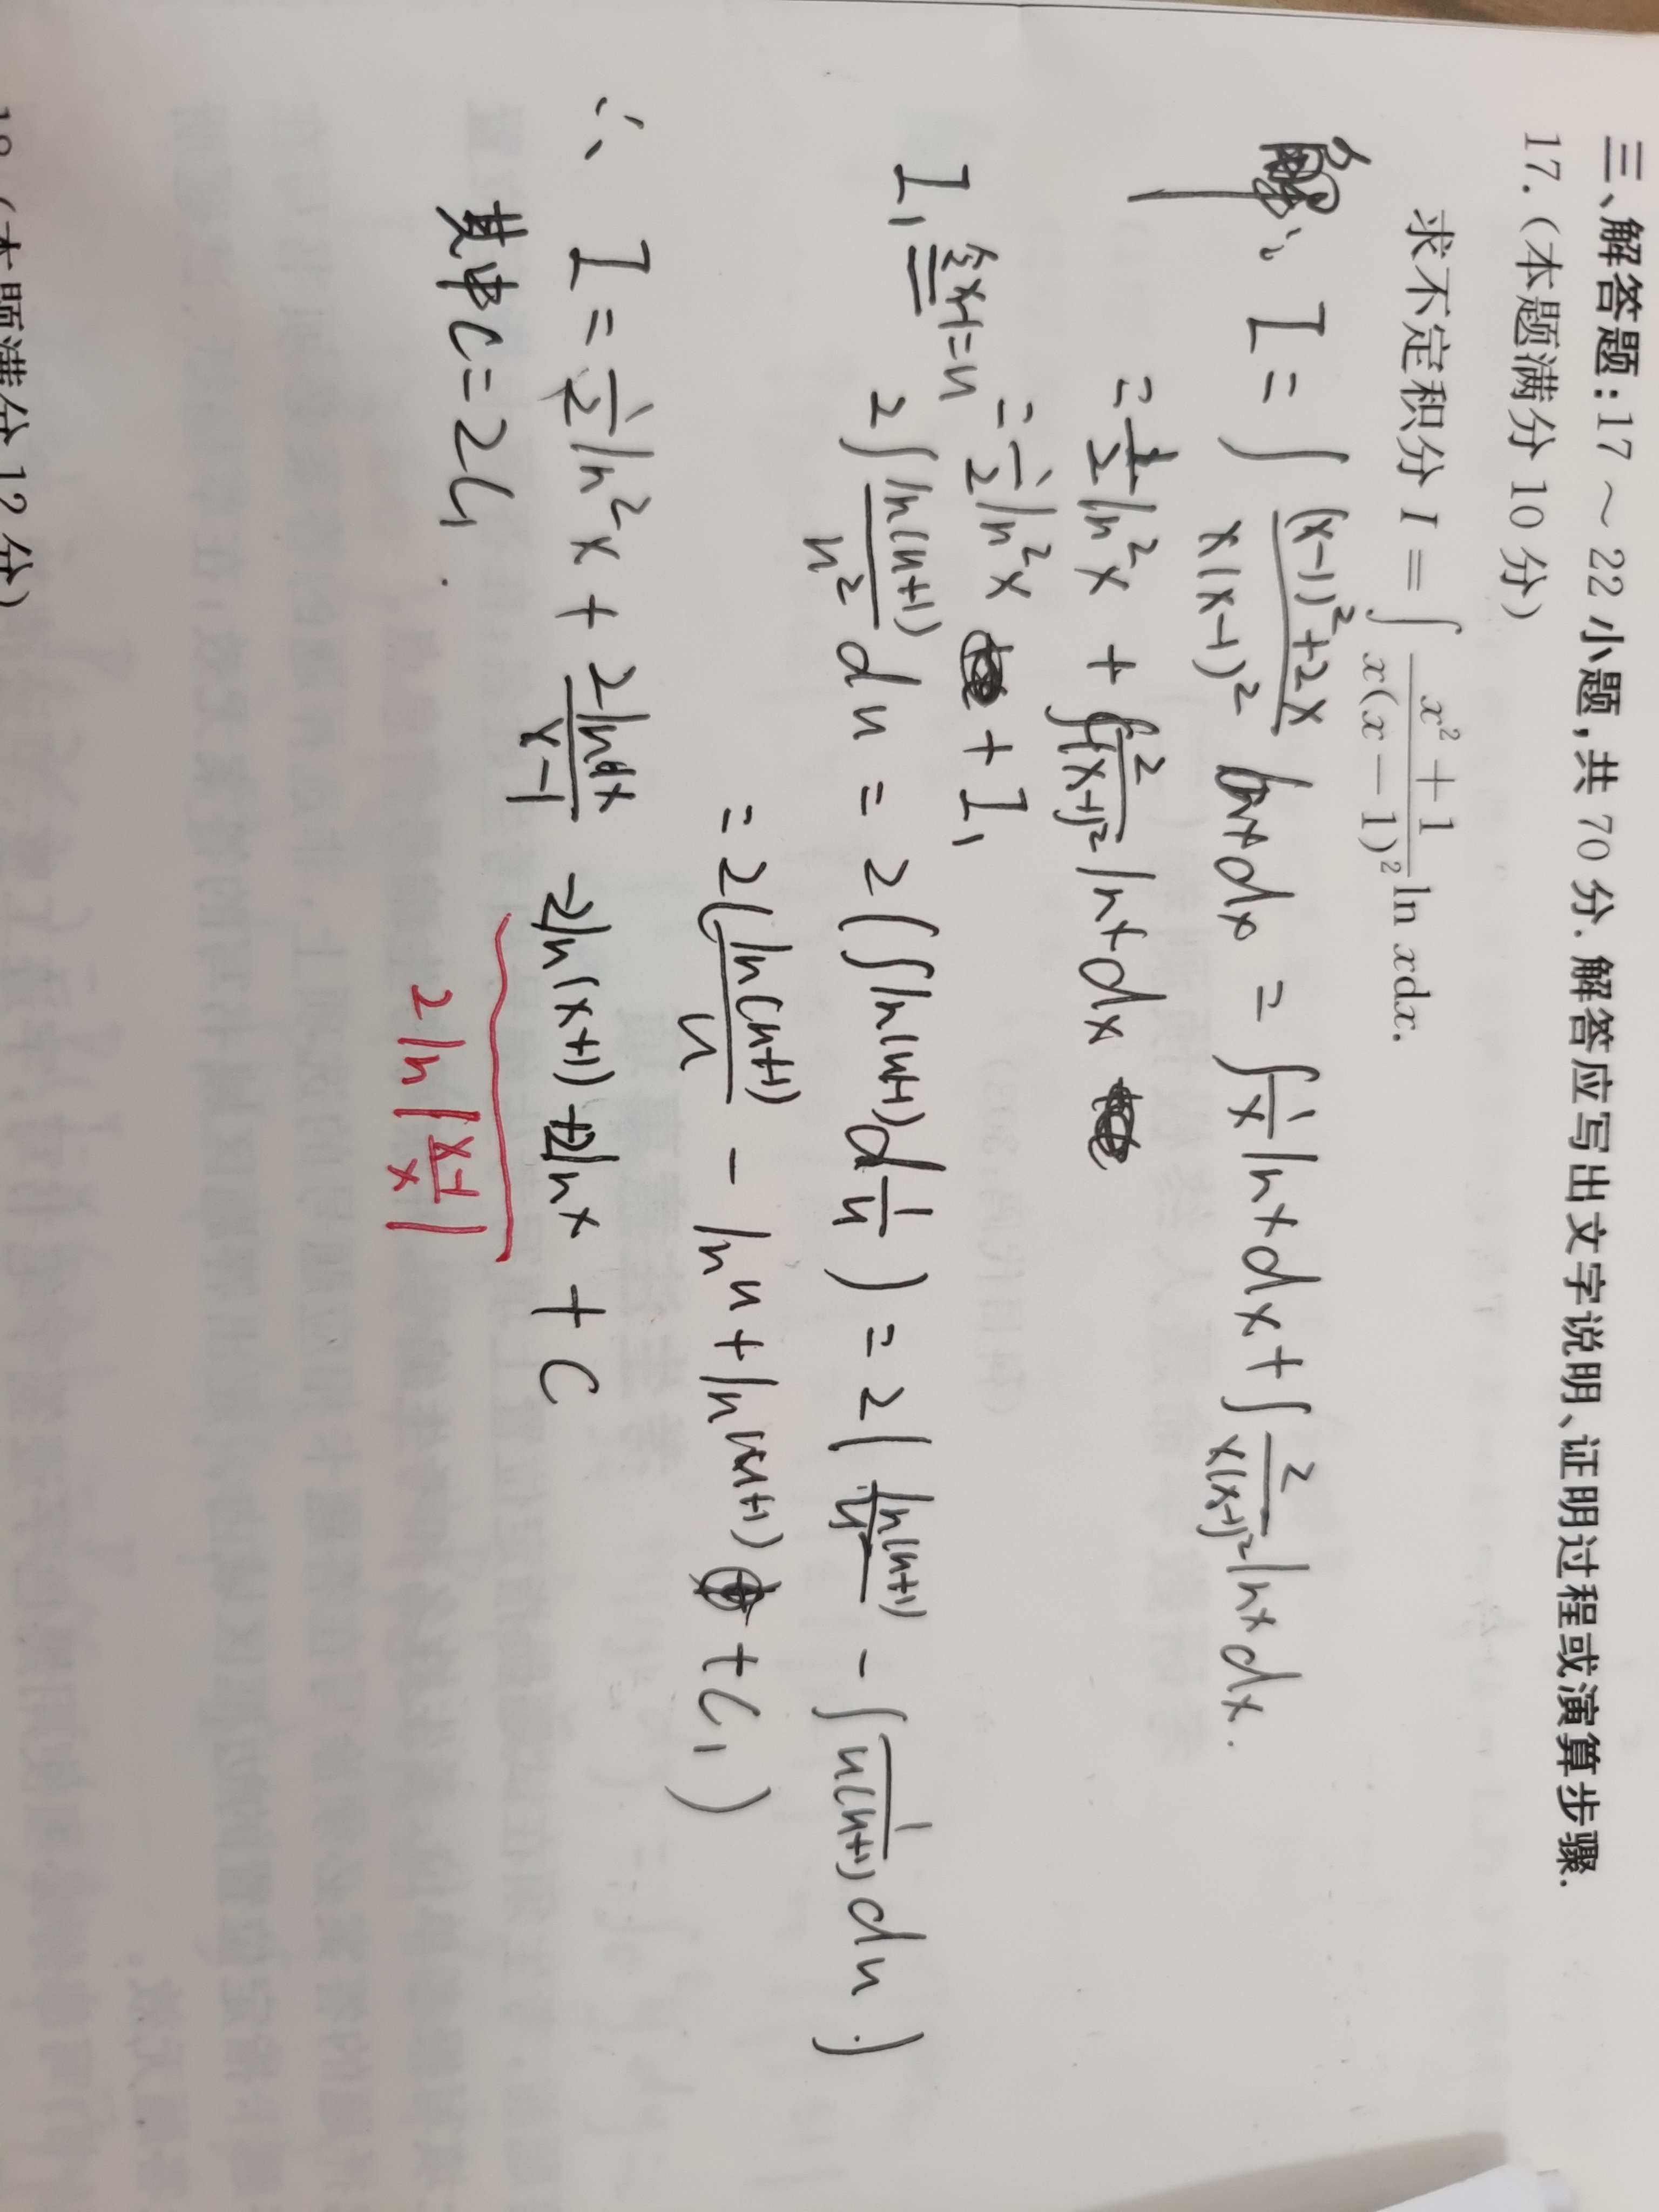 三、解答题:17～22小题,共70分.解答应写出文字说明、证明过程或演算步骤.
17.(本题满分10分)
求不定积分 I = ∫ (x²+1)/(x(x-1)²) ln xdx.
解: I = ∫ ((x-1)²+2x)/(x(x-1)²) lnx dx = ∫ 1/x lnx dx + ∫ 2/(x(x-1)²) lnx dx.
= 1/2 ln²x + ∫ 2/(x-1)² lnx dx
= 1/2 ln²x + I₁
I₁ 令x-1=u 2∫ ln(u+1)/u² du = 2(∫ ln(u+1) d 1/u) = 2( ln(u+1)/u - ∫ 1/(u(u+1)) du)
= 2( ln(u+1)/u - ln u + ln(u+1) + C₁)
∴ I = 1/2 ln²x + 2lnx/(x-1) -2ln(x-1) +2lnx + C
2 ln |(x-1)/x|
其中C=2C₁.
18.(本题满分12分)